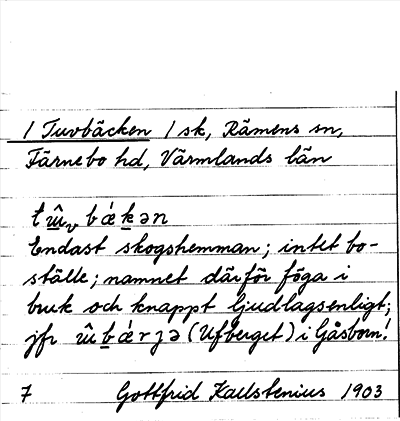 / Tuvbäcken / sk, Rämens sn,
Färnebo hd, Värmlands län
Endast skogshemman; intet bo-
ställe; namnet därför föga i
bruk och knappt ljudlagsenligt;
jfr (Ufberget) i Gåsborn!
7 Gottfrid Kallstenius 1903